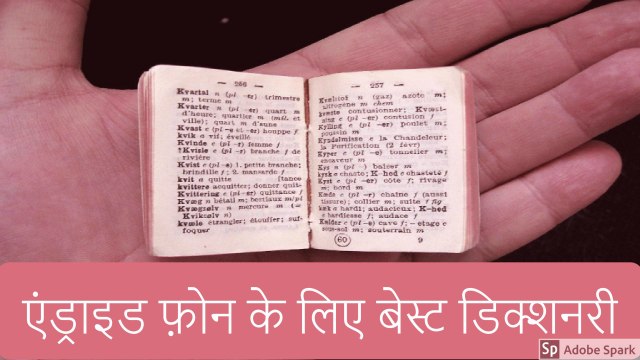 — 256 —
Kvartal n (pl -er) trimestre
m; terme m
Kvarter n (pl -er) quart m
d'heure; quartier m (mil. et
ville); quart m d'aune
Kvast c (pl -e et -er) houppe f
kvik a vif; éveillé
Kvinde c (pl -r) femme f
Kvisle c (pl -r) branche f de
rivière
Kvist c (pl -e) 1. petite branche;
brindille f; 2. mansarde f
kvit a quitte [tance
kvittere acquitter; donner quit-
Kvittering c (pl -er) quittance f
Kvæg n bétail m; bestiaux m/pl
Kvægsølv n mercure m (=
Kviksølv n)
kvæle étrangler; étouffer; suf-
foquer
— 257 —
Kvælstof n (gaz) azote m;
nitrogène m chem
kvæste contusionner; Kvæst-
ning c (pl -er) contusion f
Kylling c (pl -er) poulet m;
poussin m
Kyndelmisse c la Chandeleur;
la Purification (2 févr)
Kyper c (pl -e) tonnelier m;
encaveur m
Kys n (pl -) baiser m
kysk a chaste; K-hed c chasteté f
Kyst c (pl -er) côte f; rivage
m; bord m
Kæde c (pl -r) chaîne f (aussi
tissure); collier m; suite f fig
kæk a hardi; audacieux; K-hed
c hardiesse f; audace f
Kælder c (pl -e) cave f; - etage c
sous-sol m; souterrain m
60 9
एंड्राइड फ़ोन के लिए बेस्ट डिक्शनरी
Sp Adobe Spark